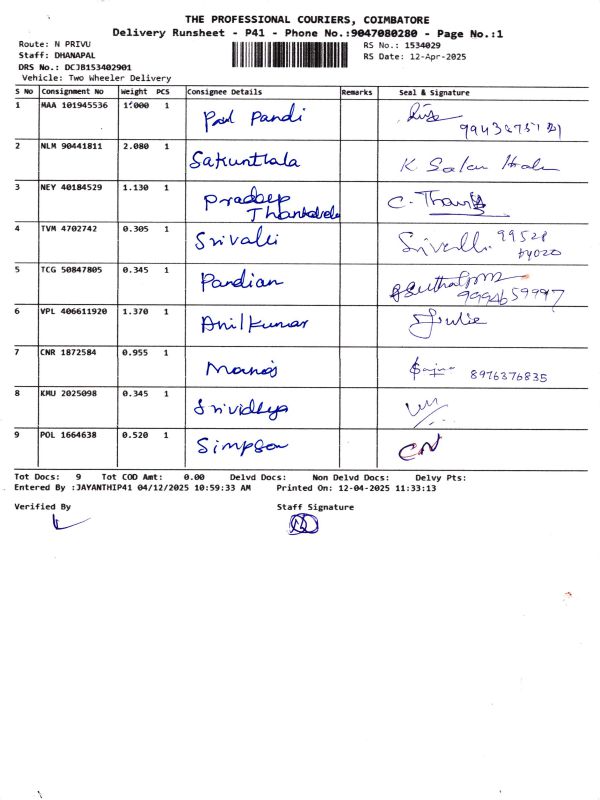 THE PROFESSIONAL COURIERS, COIMBATORE
Delivery Runsheet - P41 - Phone No.:9047080280 - Page No.:1
Route: N PRIVU RS No.: 1534029
Staff: DHANAPAL RS Date: 12-Apr-2025
DRS No.: DCJB153402901
Vehicle: Two Wheeler Delivery
S No Consignment No Weight PCS Consignee Details Remarks Seal & Signature
1 MAA 101945536 1.000 1 Paul Pandi
2 NLM 90441811 2.080 1 Sakunthala
3 NEY 40184529 1.130 1 Pradeep Thankavelu C. Thangam
4 TVM 4702742 0.305 1 Srivalli Srivalli 99528
5 TCG 50847805 0.345 1 Pandian 9994659997
6 VPL 406611920 1.370 1 Anilkumar Julie
7 CNR 1872584 0.955 1 Manoj 8976376835
8 KMU 2025098 0.345 1 Srividhya
9 POL 1664638 0.520 1 Simpson CN
Tot Docs: 9 Tot COD Amt: 0.00 Delvd Docs: Non Delvd Docs: Delvy Pts:
Entered By :JAYANTHIP41 04/12/2025 10:59:33 AM Printed On: 12-04-2025 11:33:13
Verified By Staff Signature